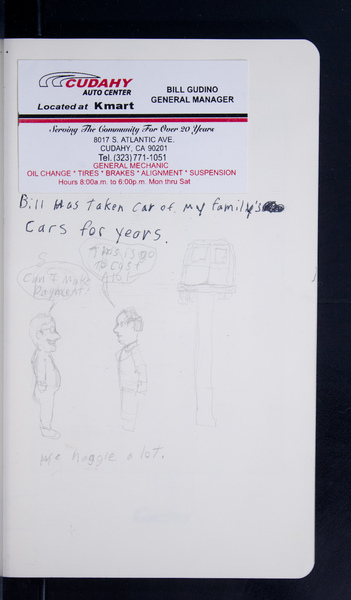 CUDAHY
AUTO CENTER
Located at Kmart
BILL GUDINO
GENERAL MANAGER
Serving The Community For Over 20 Years
8017 S. ATLANTIC AVE.
CUDAHY, CA 90201
Tel. (323) 771-1051
GENERAL MECHANIC
OIL CHANGE * TIRES * BRAKES * ALIGNMENT * SUSPENSION
Hours 8:00a.m. to 6:00p.m. Mon thru Sat
Bill Has taken car of my family's
Cars for years.
This is go
to cost
a lot
Can I make
Payment?
We haggle a lot.